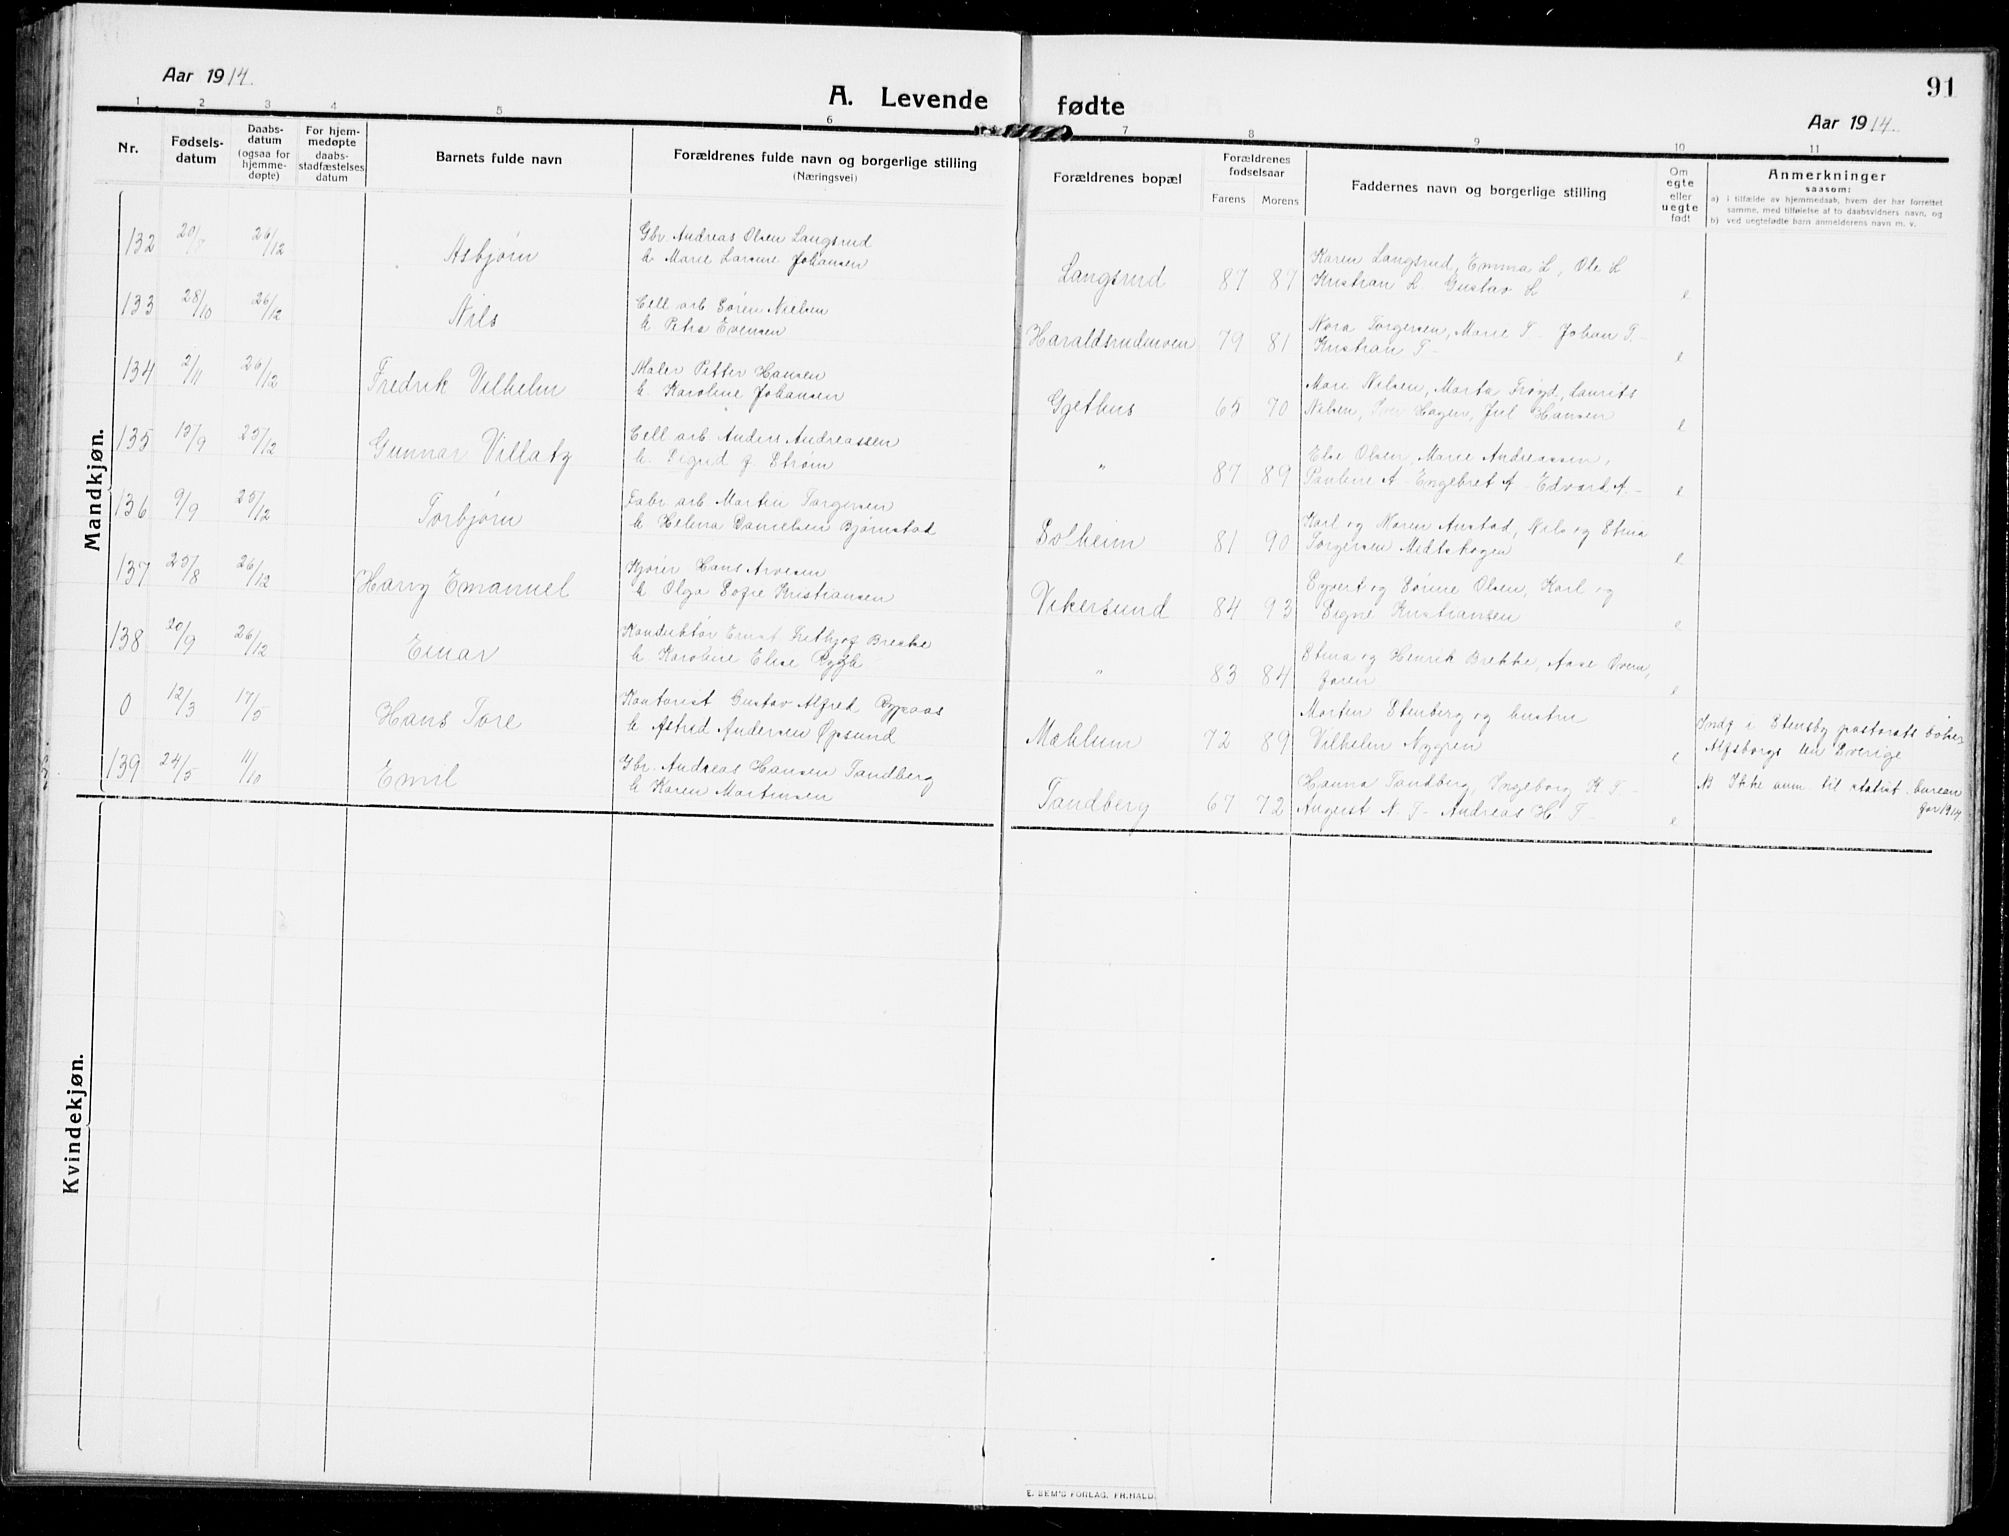 Aar 1914.
A. Levende fødte
91
Aar 1914.
1 2 3 4 5 6 7 8 9 10 11
Nr.
Fødsels-
datum
Daabs-
datum
(ogsaa for
hjemme-
døpte)
For hjem-
medøpte
daabs-
stadfæstelses
datum
Barnets fulde navn
Forældrenes fulde navn og borgerlige stilling
(Næringsvei)
Forældrenes bopæl
Forældrenes
fødselsaar
Farens Morens
Faddernes navn og borgerlige stilling
Om
egte
eller
uegte
født
Anmerkninger
saasom:
a) i tilfælde av hjemmedaab, hvem der har forrettet
samme, med tilføielse af to daabsvidners navn, og
b) ved uegtefødte barn anmelderens navn m. v.
Mandkjøn.
132 20/8 26/12 Asbjørn
Gbr. Andreas Olsen Langsrud
h Marie Larsine Johansen
Langsrud 87 87
Karen Langsrud, Emma L, Ole L
Kristian L Gustav L
e
133 28/10 26/12 Nils
Cell arb Søren Nielsen
h Petra Evensen
Haraldsrudmoen 79 81
Nora Torgersen, Marie T- Johan T-
Kristian T-
e
134 2/11 26/12 Fredrik Vilhelm
Maler Petter Hansen
h. Karoline Johansen
Gjethus 65 70
Mari Nilsen, Marta Frøyd, Laurits
Nilsen, Hagen, Jul Hansen
e
135 13/9 25/12 Gunnar
Cell arb Anders Andreassen
h. Sigrid f Strøm
" 87 89
Else Olsen, Marie Andreassen,
Pauline A- Engebret A- Edvart A.-
e
136 9/9 25/12 Torbjørn
Fabr arb Martin Torgersen
h Helena Danielsen Bjørnstad
Solheim 81 90
Karl og Maren Anstad, Nils og Stina
Torgersen Midtskogen
e
137 25/8 26/12 Harry Emanuel
Kjører Hans Arvesen
h Olga Sofie Kristiansen
Vikersund 84 93
Syvert og Sørine Olsen, Karl og
Signe Kristiansen
e
138 20/9 26/12 Einar
Konduktør Ernst Fritjof Brekke
h. Karoline Elise Rygh
" 83 84
Stina og Henrik Brekke, Aase
e
0 12/3 17/5 Hans Tore
Kontorist Gustav Alfred Rypaas
h Astrid Andersen Øpsund
Mæhlum 72 89
Morten Stenberg og hustru
Vilhelm Nygren
e
Indf i Stensby pastorats bøker
Alfsborgs len Sverige
139 24/5 11/10 Emil
Gbr. Andreas Hansen Tandberg
h Karen Martinsen
Tandberg 67 72
Hanna Tandberg, Ingeborg K T-
August N. T- Andreas H T-
e
NB Ikke anm til statist. bureau
for 1914.
Kvindekjøn.
E. SEM'S FORLAG, FR.HALD.